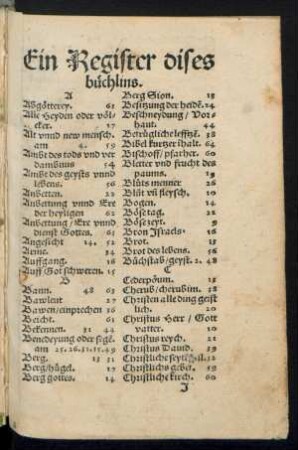 Ein Register dises
büchlins.
A
Abgötterey. 61
Alle Heyden oder völ-
cker. 23
Alt vnnd new mensch.
am 4. 59
Ambt des tods vnd ver
damnuß 54
Ambt des geysts vnnd
lebens. 56
Anbetten. 23
Anbettung vnnd Ere
der heyligen 61
Anbettung / Ere vnnd
dienst Gottes. 61
Angesicht 14. 52
Arme. 54
Auffgang. 16
Auff Got schweren. 15
B
Bann. 48 63
Bawleut 27
Bawen/einprechen 16
Beicht. 61
Bekennen. 31 44
Benedeyung oder segē.
Berg. 15 31
Berg/hügel. 17
Berg gottes. 14
Berg Sion. 15
Besitzung der heidē. 24
Beschneydung / Vor-
haut. 44
Betrügliche lefftzē. 38
Bibel kurtzer ĩhalt. 64
Bischoff/pfarher. 60
Bletter vnd frucht des
paums. 19
Blůts menner 26
Blůt vñ fleysch. 10
Bogen. 14
Böse tag. 21
Böse zeyt. 9
Bron Israels. 16
Brot. 15
Brot des lebens. 56
Bůchstab/geyst. 2. 48
C
Cederpöum. 15
Cherub/cherubim. 58
Christen alle ding geist
lich. 20
Christus Herr / Gott
vatter. 10
Christus reych. 21
Christus Dauid. 39
Christliche kirch. 60
J